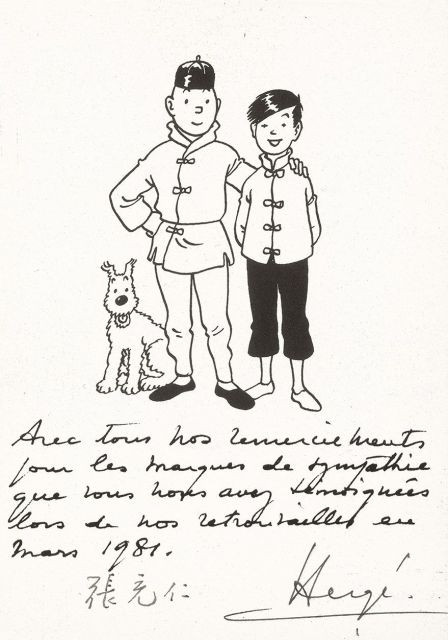 Avec tous nos remerciements
pour les marques de sympathie
que vous nous avez témoignées
lors de nos retrouvailles en
mars 1981.
張充仁
Hergé.